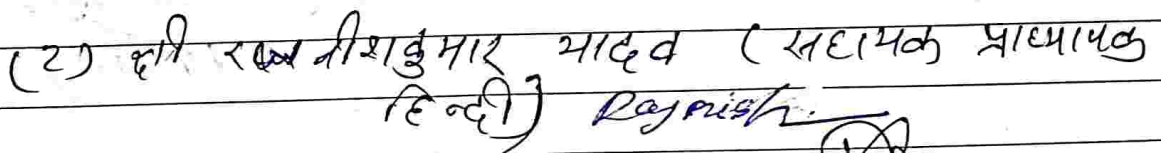 (2) श्री रजनीशकुमार यादव (सहायक प्राध्यापक
हिन्दी) Rajnish.